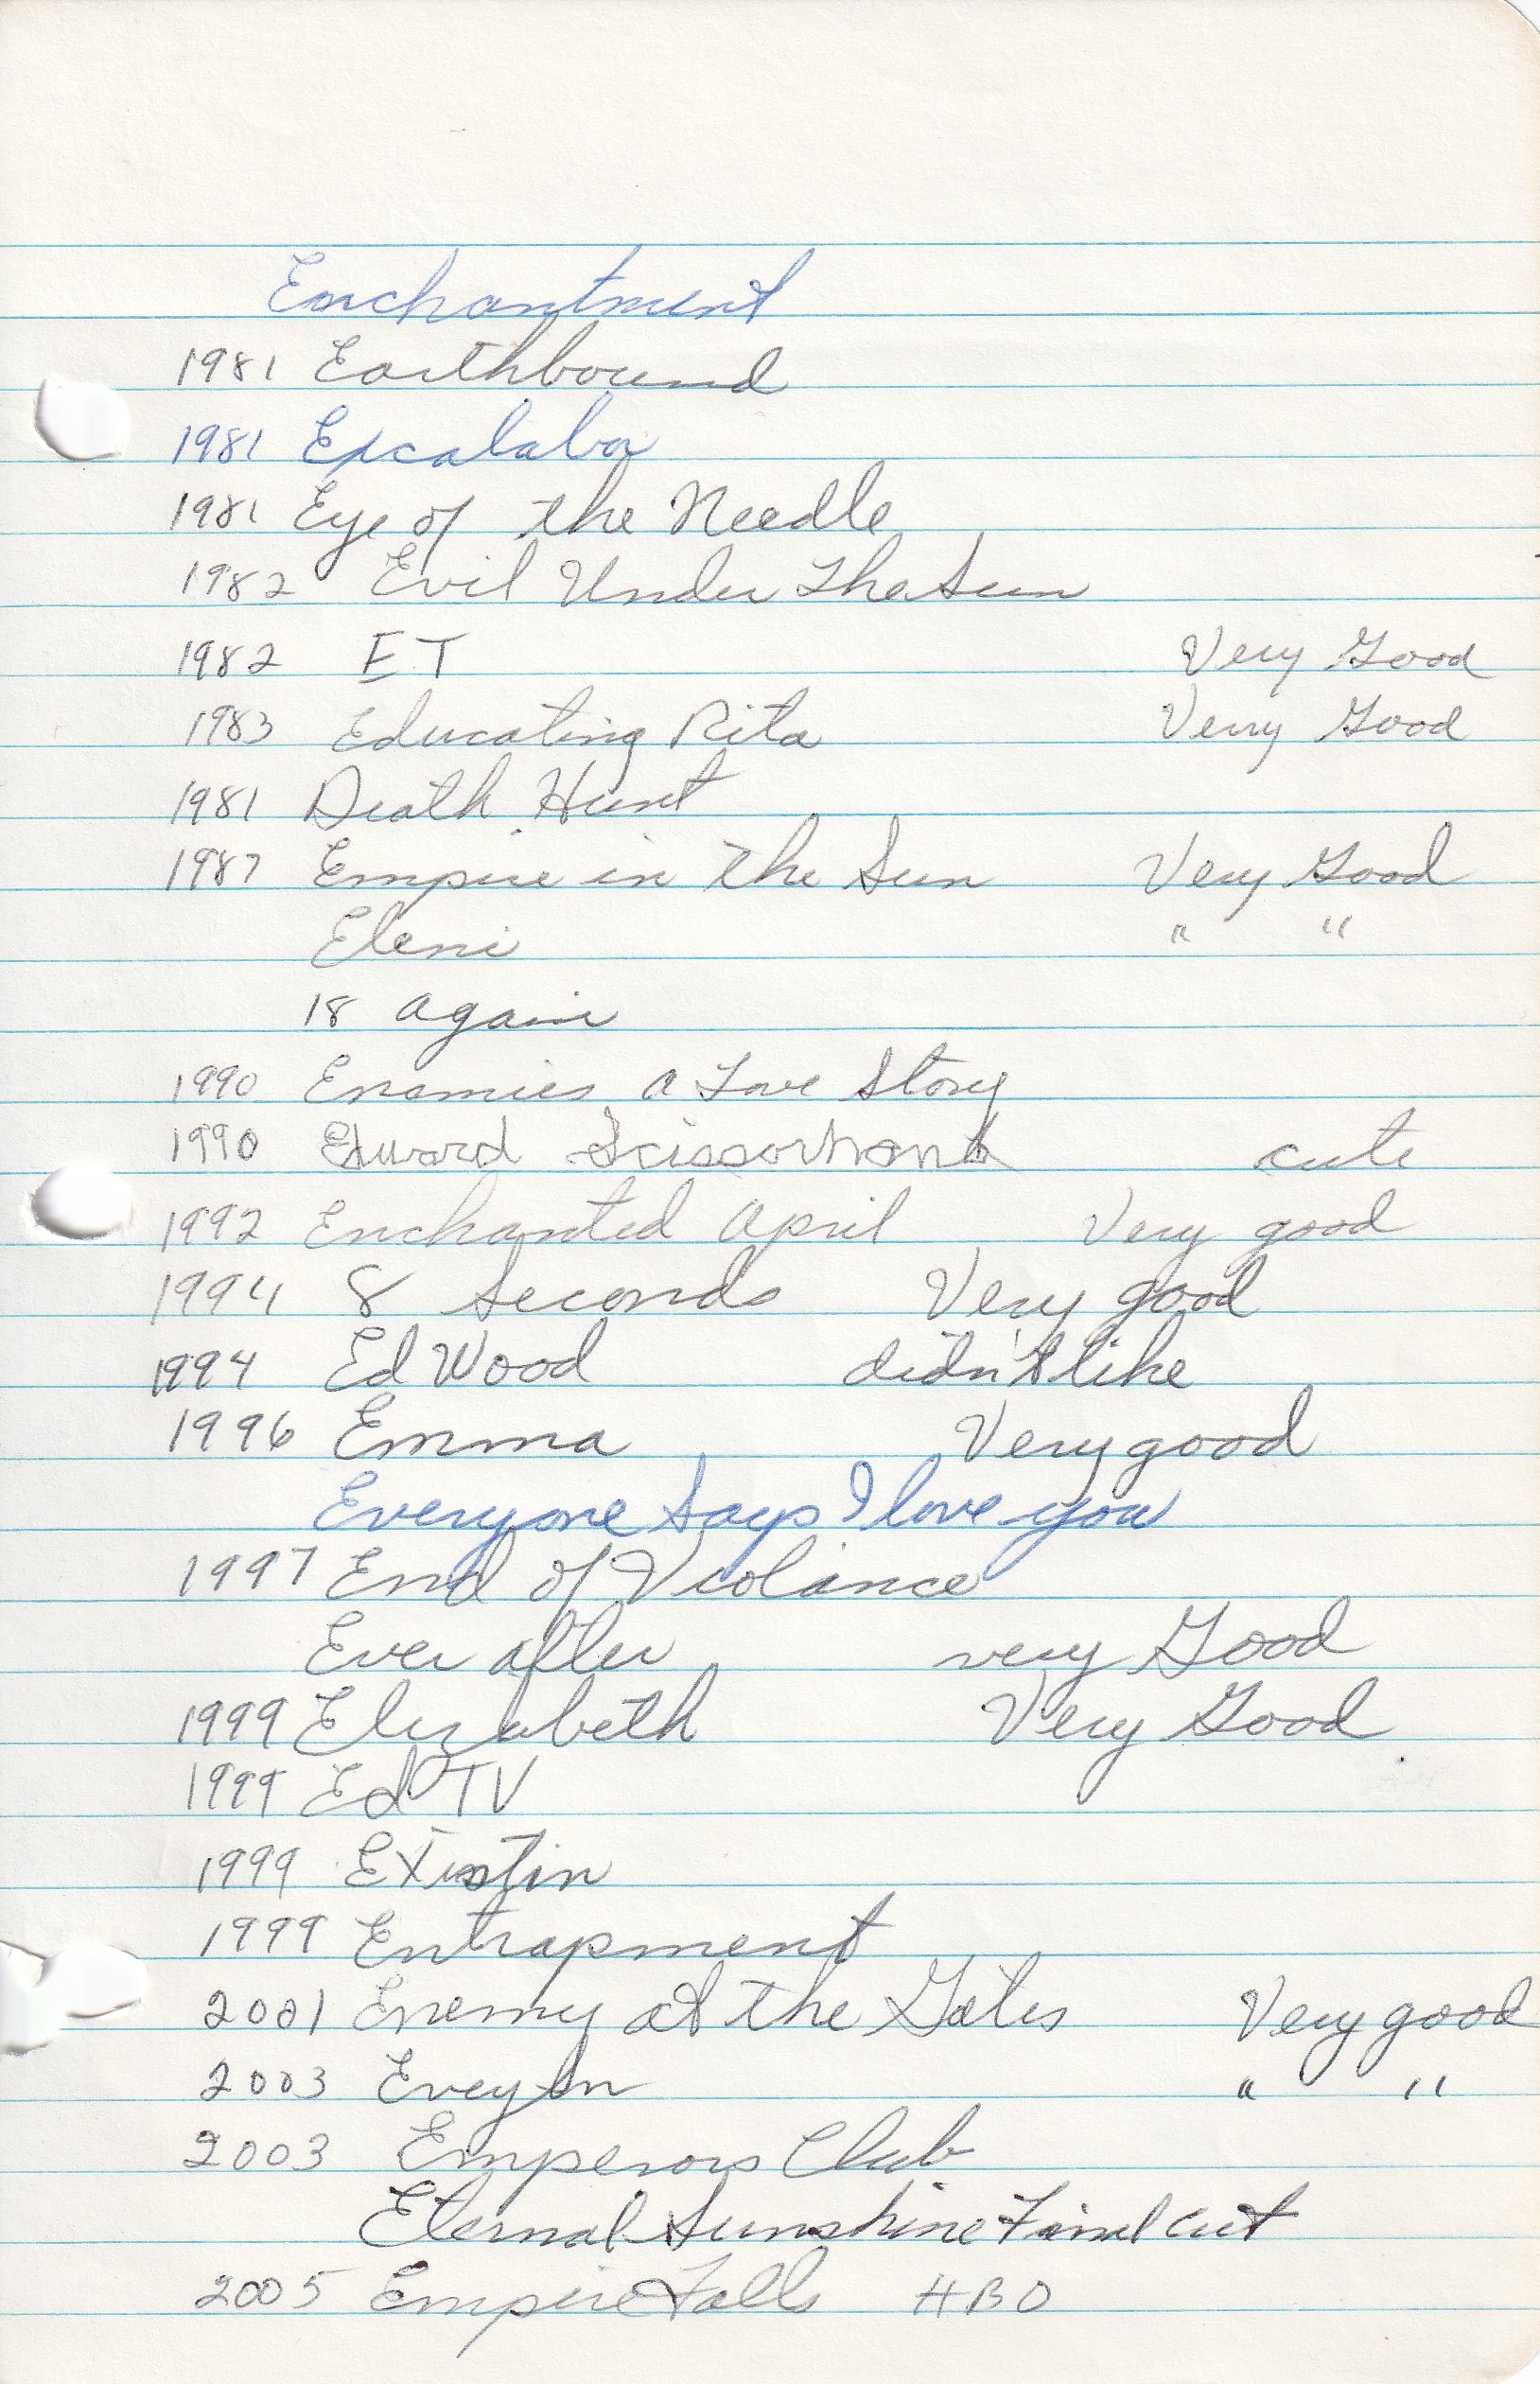 Enchantment
1981 Earthbound
1981 Excalabor
1981 Eye of the Needle
1982 Evil Under The Sun
1982 ET Very Good
1983 Educating Rita Very Good
1981 Death Hunt
1987 Empire in the Sun Very Good
Eleni " "
18 Again
1990 Enamies a Love Story
1990 Edward Scissorhand cute
1992 Enchanted April Very good
1994 8 Seconds Very good
1994 Ed Wood didn't like
1996 Emma Very good
Everyone Says I love you
1997 End of Violance
Ever after very Good
1999 Elizabeth Very Good
1999 Ed TV
1999 Existin
1999 Entrapment
2001 Enemy at the Gates Very good
2003 Eveyln " "
2003 Emperors Club
Eternal Sunshine Final Cut
2005 Empire Falls HBO